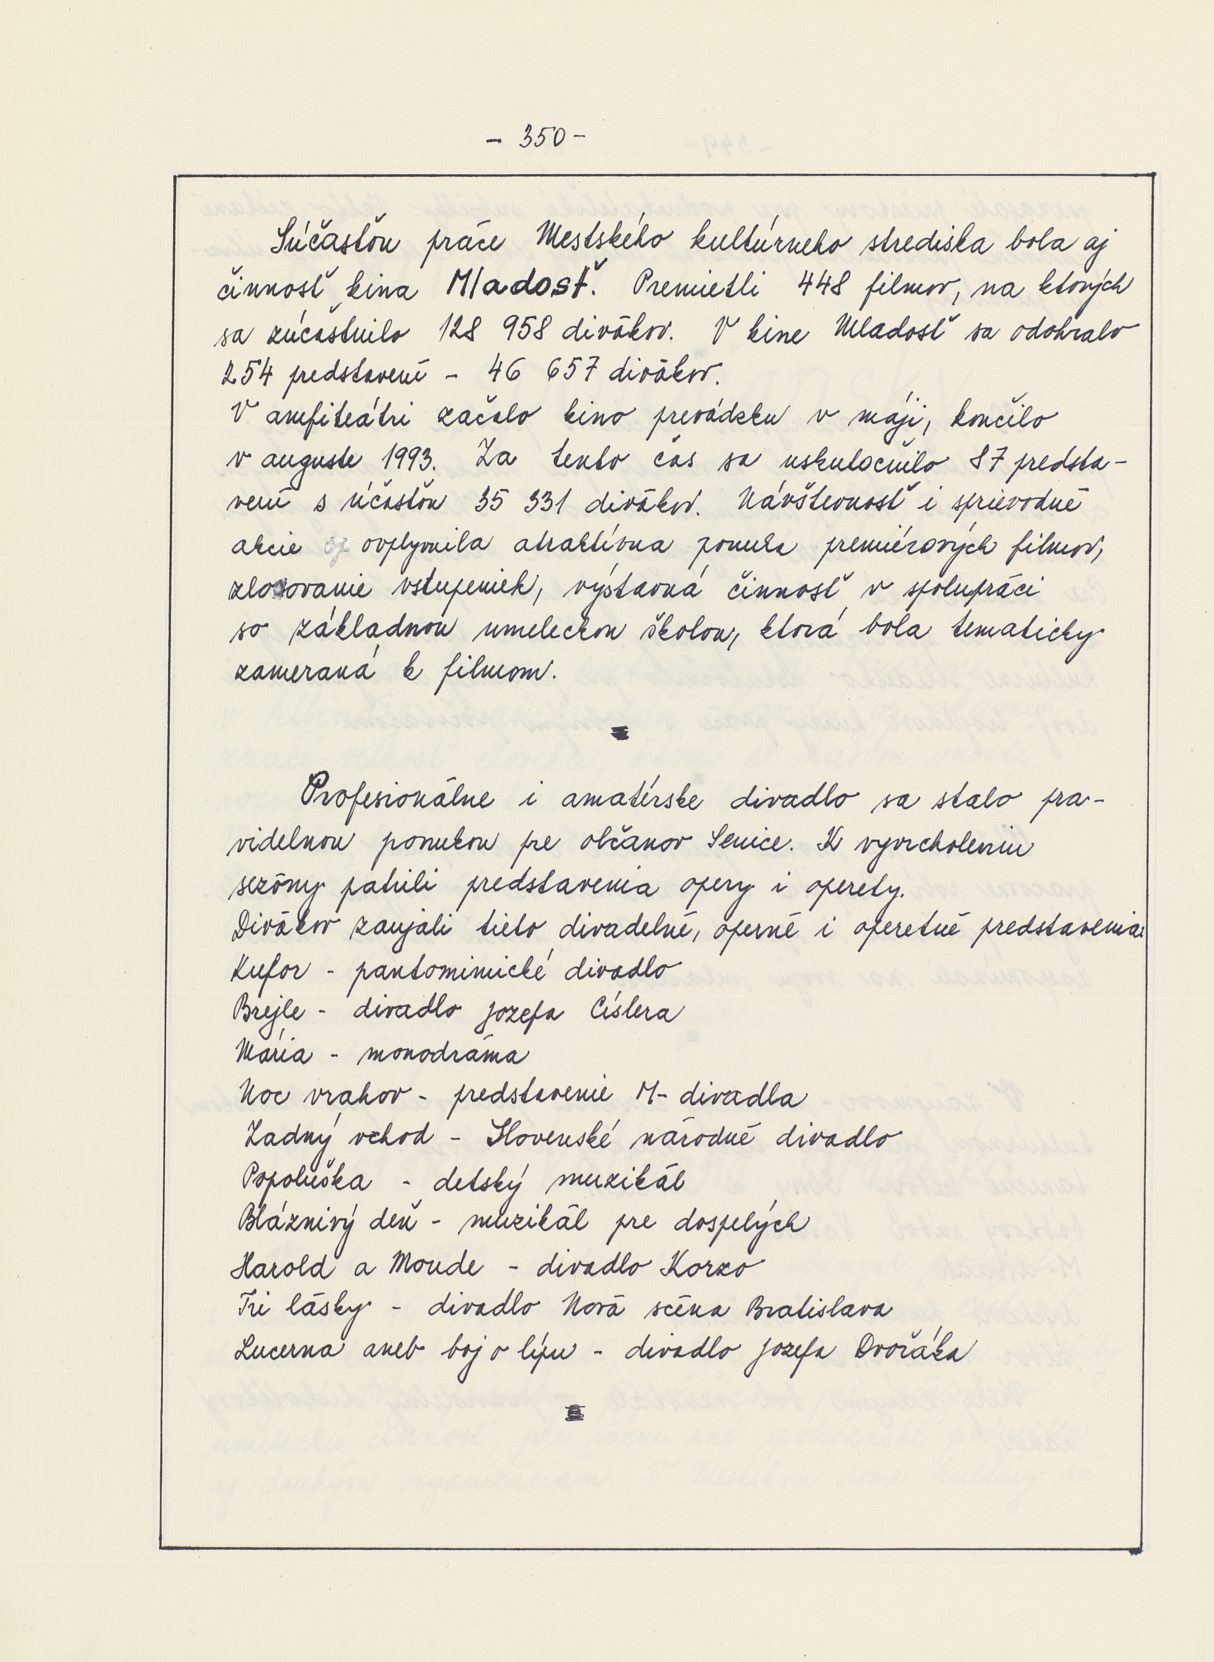 - 350 -
Súčasťou práce Mestského kultúrneho strediska bola aj
činnosť kina Mladosť. Premietli 448 filmov, na ktorých
sa zúčastnilo 128 958 divákov. V kine Mladosť sa odohralo
254 predstavení - 46 657 divákov.
V amfiteátri začalo kino prevádzku v máji, končilo
v auguste 1993. Za tento čas sa uskutočnilo 87 predsta-
vení s účasťou 35 331 divákov. Návštevnosť i sprievodné
akcie ovplyvnila atraktívna ponuka premiérových filmov,
zlosovanie vstupeniek, výstavná činnosť v spolupráci
so základnou umeleckou školou, ktorá bola tematicky
zameraná k filmom.
Profesionálne i amatérske divadlo sa stalo pra-
videlnou ponukou pre občanov Senice. K vyvrcholeniu
sezóny patrili predstavenia opery i operety.
Divákov zaujali tieto divadelné, operné i operetné predstavenia:
Kufor - pantomimické divadlo
Brejle - divadlo Jozefa Císlera
Mária - monodráma
Noc vrahov - predstavenie M-divadla
Zadný vchod - Slovenské národné divadlo
Popoluška - detský muzikál
Bláznivý deň - muzikál pre dospelých
Harold a Moude - divadlo Korzo
Tri lásky - divadlo Nová scéna Bratislava
Lucerna aneb boj o lípu - divadlo Jozefa Dvořáka